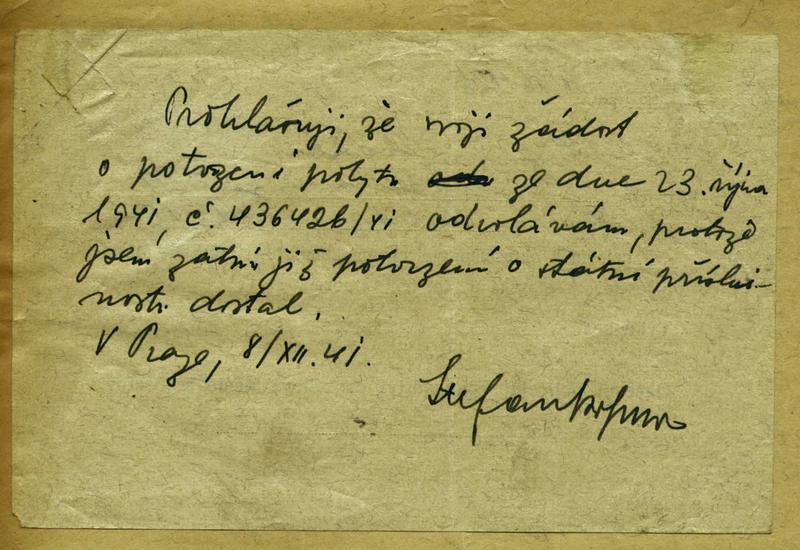 Prohlašuji, že moji žádost
o potvrzení pobytu ze dne 23. října
1941, č. 436426/XI odvolávám, protože
jsem zatím již potvrzení o státní přísluš-
nosti dostal.
V Praze, 8/XII.41.
Stefan